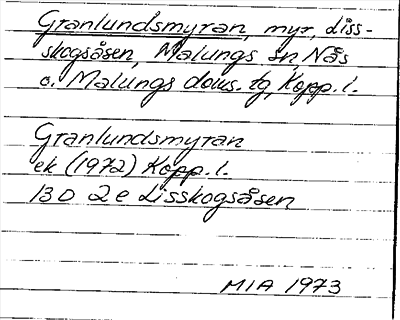 Granlundsmyran, myr, Liss-
skogsåsen, Malungs sn, Nås
o. Malungs doms. tg, Kopp. l.
Granlundsmyran
ek (1972) Kopp. l.
13 D 2 e Lisskogsåsen
MIA 1973